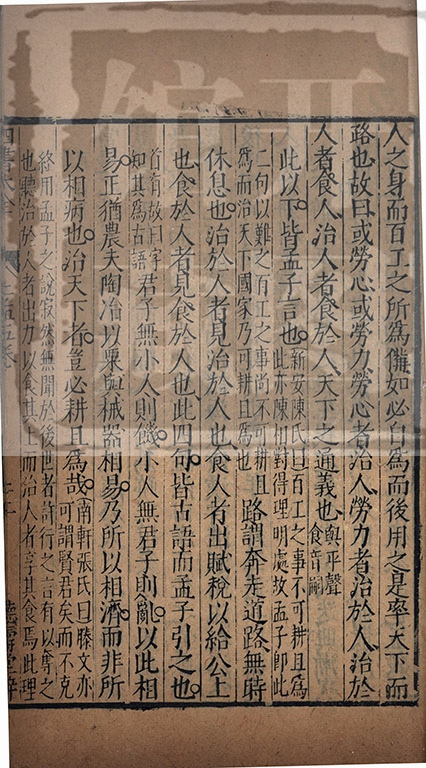 人之身而百工之所爲備如必自爲而後用之是率天下而
路也故曰或勞心或勞力勞心者治人勞力者治於人治於
人者食人治人者食於人天下之通義也與平聲食音嗣
此以下皆孟子言也新安陳氏曰百工之事不可耕且爲
此亦陳相對得理明處故孟子卽此
二句以難之百工之事尚不可耕且
爲而治天下國家乃可耕且爲也路謂奔走道路無時
休息也治於人者見治於人也食人者出賦稅以給公上
也食於人者見食於人也此四句皆古語而孟子引之也
首有故曰字
知其爲古語君子無小人則饑小人無君子則亂以此相
易正猶農夫陶冶以粟與械器相易乃所以相濟而非所
以相病也治天下者豈必耕且爲哉南軒張氏曰滕文亦
可謂賢君矣而不克
終用孟子之說寂然無聞於後世者許行之言有以奪之
也聽治於人者出力以食其上而治人者享其食焉此理
四書大全